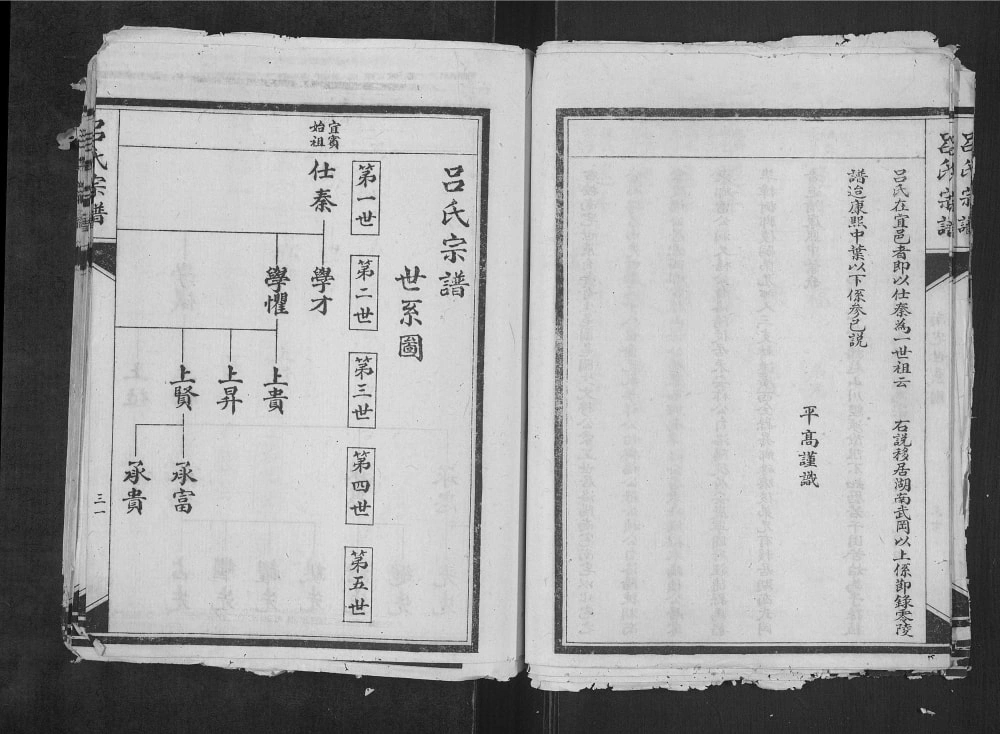 呂氏宗譜
呂氏在宜邑者即以仕秦為一世祖云 右說移居湖南武岡以上係節錄零陵
譜造康熙中葉以下係參己說
平高謹識
呂氏宗譜
世系圖
第一世
第二世
第三世
第四世
第五世
宜賓
始祖
仕秦
學才
學懼
上貴
上昇
上賢
承富
承貴
呂氏宗譜
三一